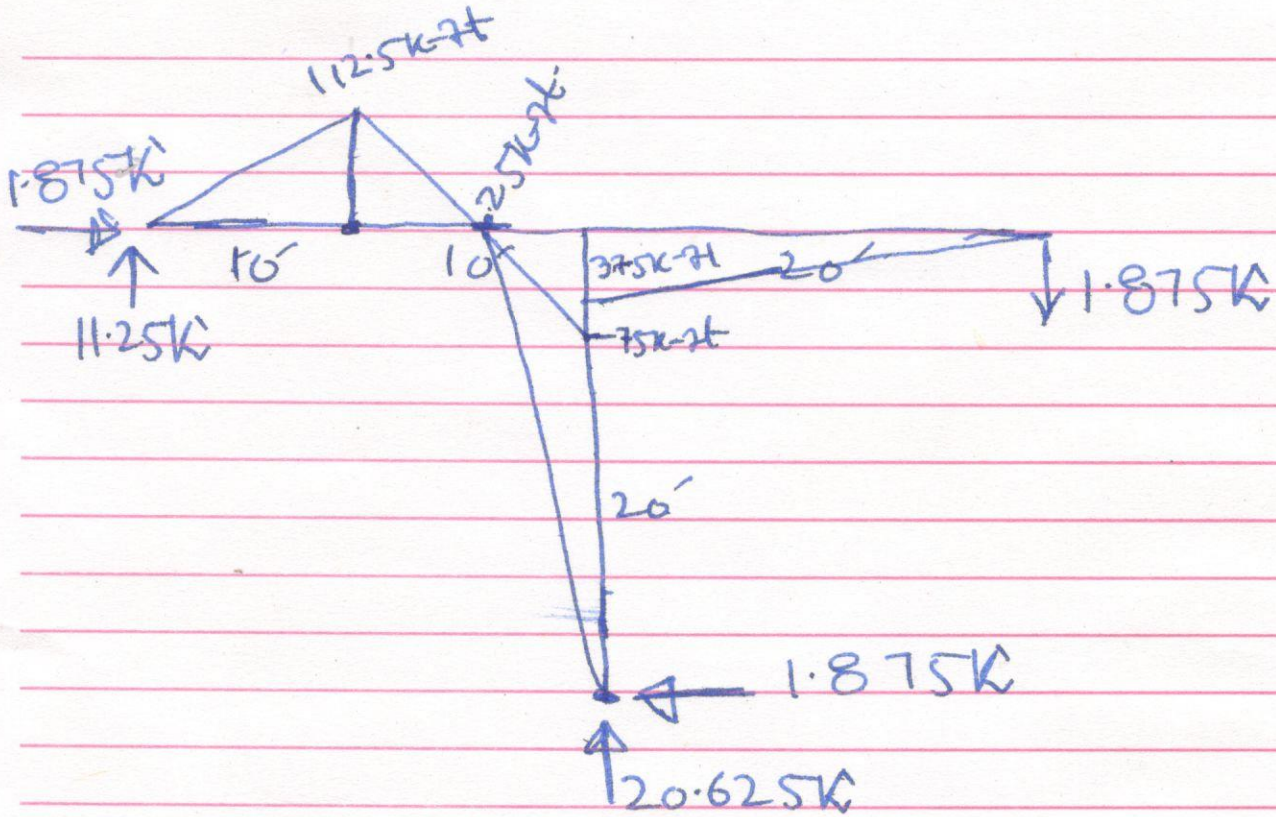 112.5K-ft
.25K-ft.
1.875K
10'
10'
375K-ft
20'
1.875K
11.25K
-75K-ft
20'
1.875K
20.625K